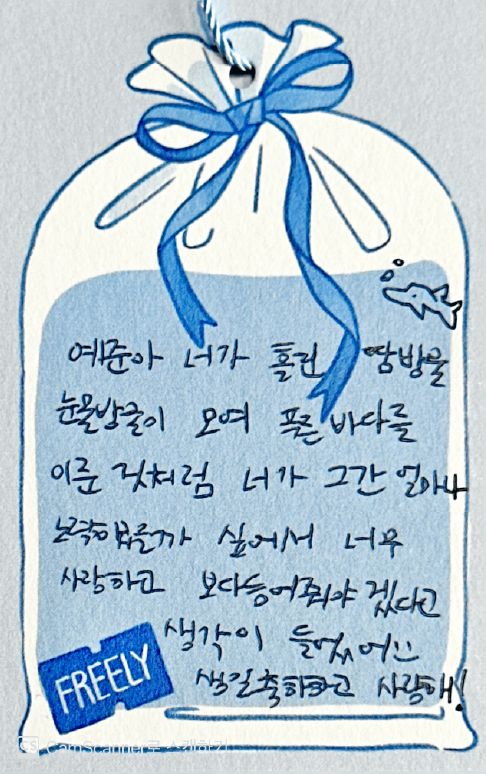 예준아 너가 흘린 땀방울
눈물방울이 모여 푸른 바다를
이룬 것처럼 너가 그간 얼마나
노력해왔을까 싶어서 너무
사랑하고 보다듬어줘야 겠다고
생각이 들었어!!
생일축하하고 사랑해!
FREELY
CS CamScanner로 스캔하기